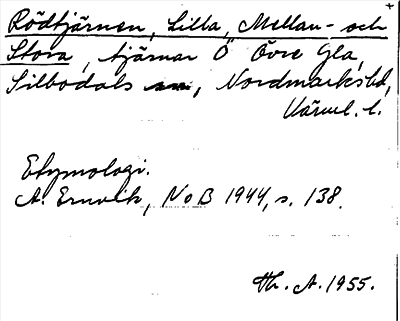 Rödtjärnen, Lilla, Mellan- och
Stora, tjärnar Ö Övre Gla,
Silbodals sn, Nordmarks hd,
Värml. l.
Etymologi.
A. Ernvik, NoB 1944, s. 138.
Th. A. 1955.